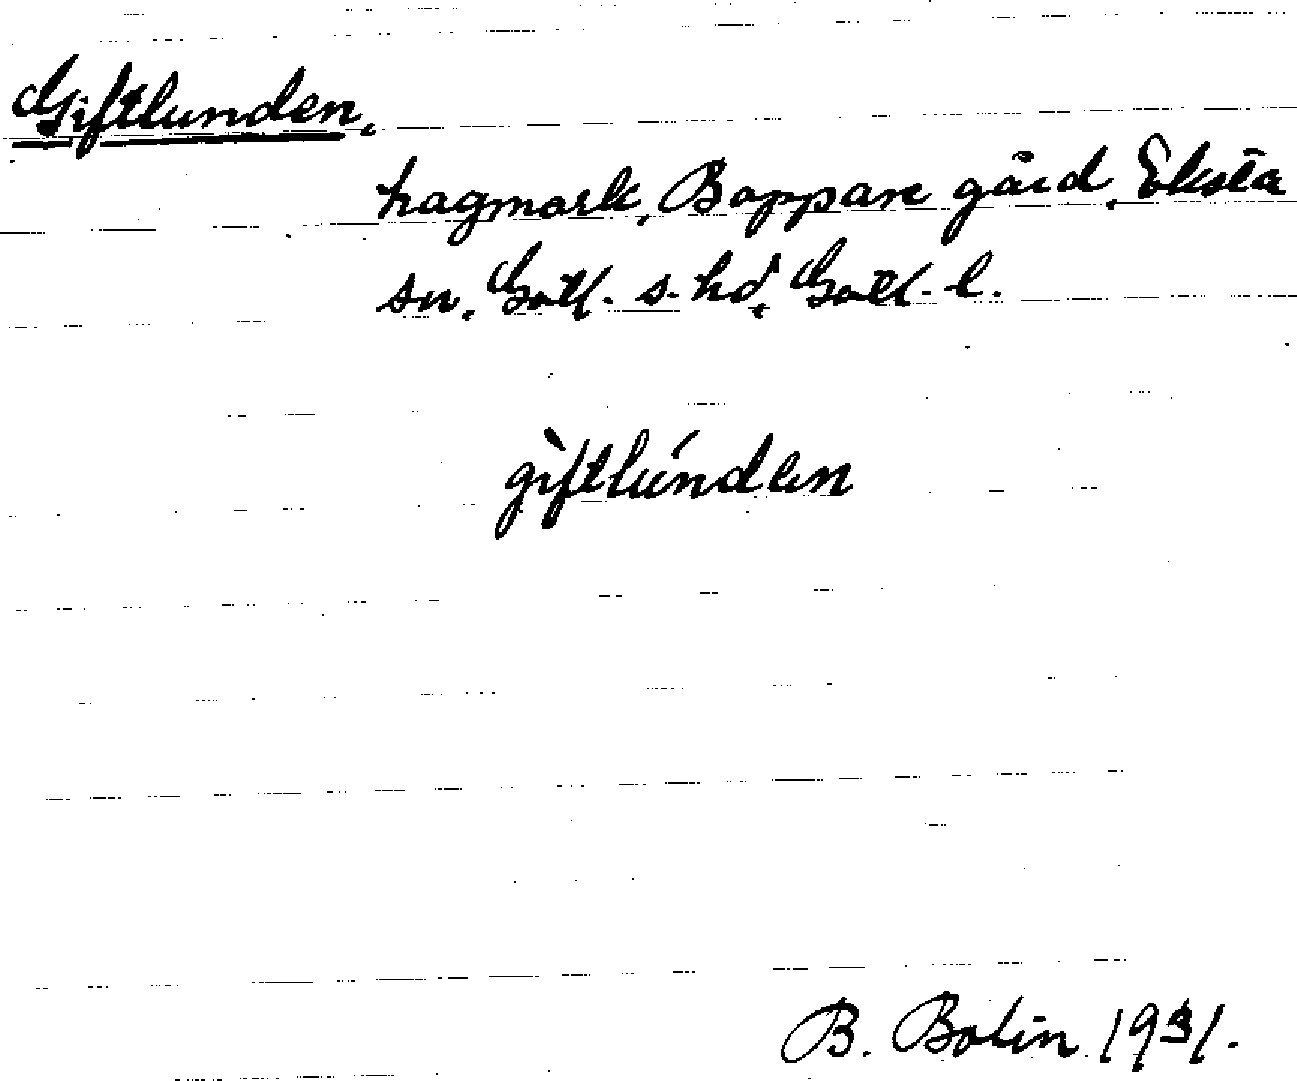 Giftlunden,
hagmark, Boppare gård, Eksta
sn, Gotl. s. hd, Gotl. l.
gìftlúnden
B. Bolin 1931.